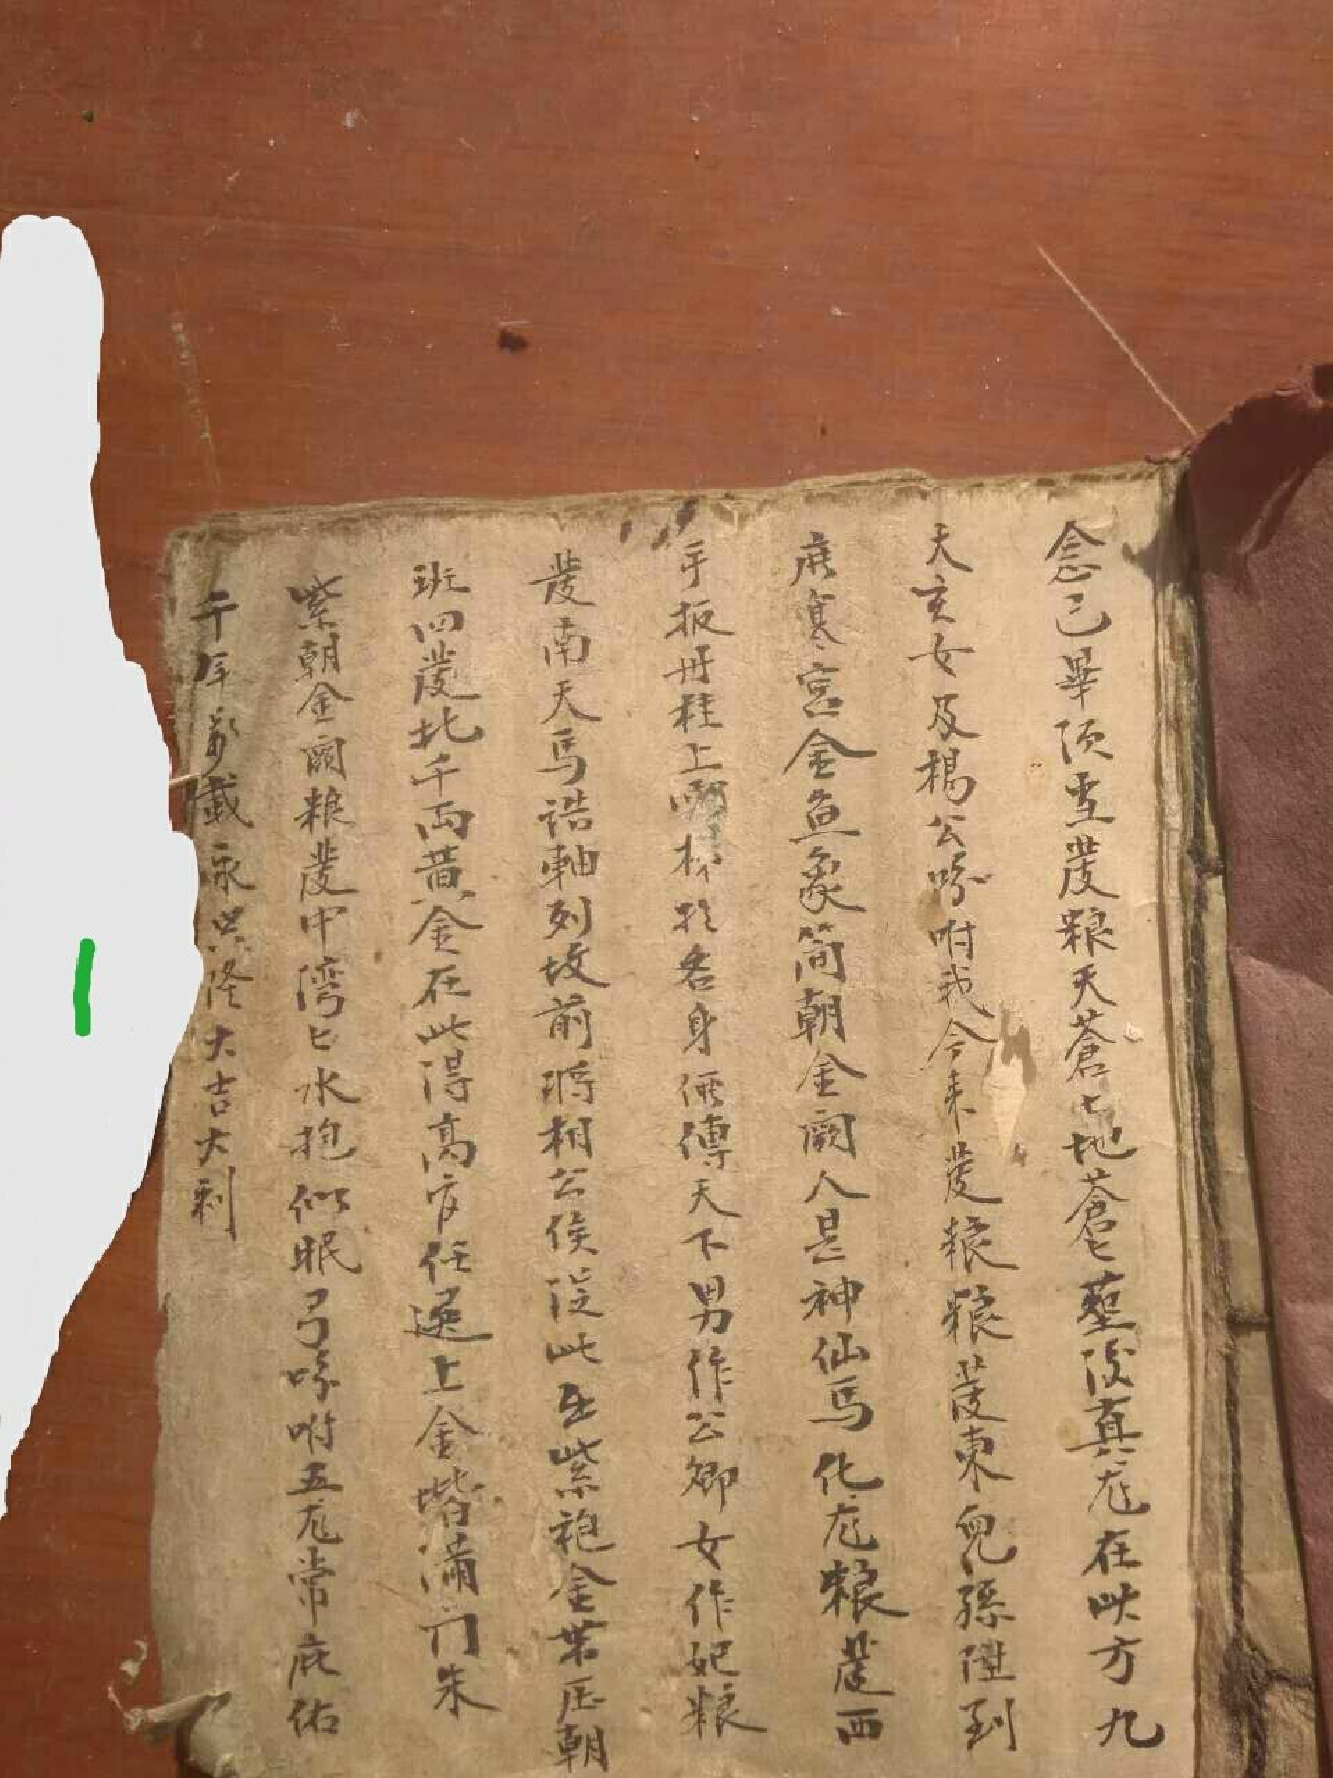 念已畢須雪發粮天蒼七地蒼七墓後真龙在此方九
天玄女及楊公吩咐我今来發粮粮發東兒孫陞到
廣寒宮金魚象简朝金阙人是神仙馬化龙粮發西
手扳丹桂上 梯 名身 傳天下男作公卿女作妃粮
發南天馬誥軸列坟前将相公侯從此出紫袍金 压朝
班四發北千両黄金在此得高官任选上金堦满门朱
紫朝金阙粮發中湾匕水抱似眠弓吩咐五龙常庇佑
千年 載永興隆大吉大利